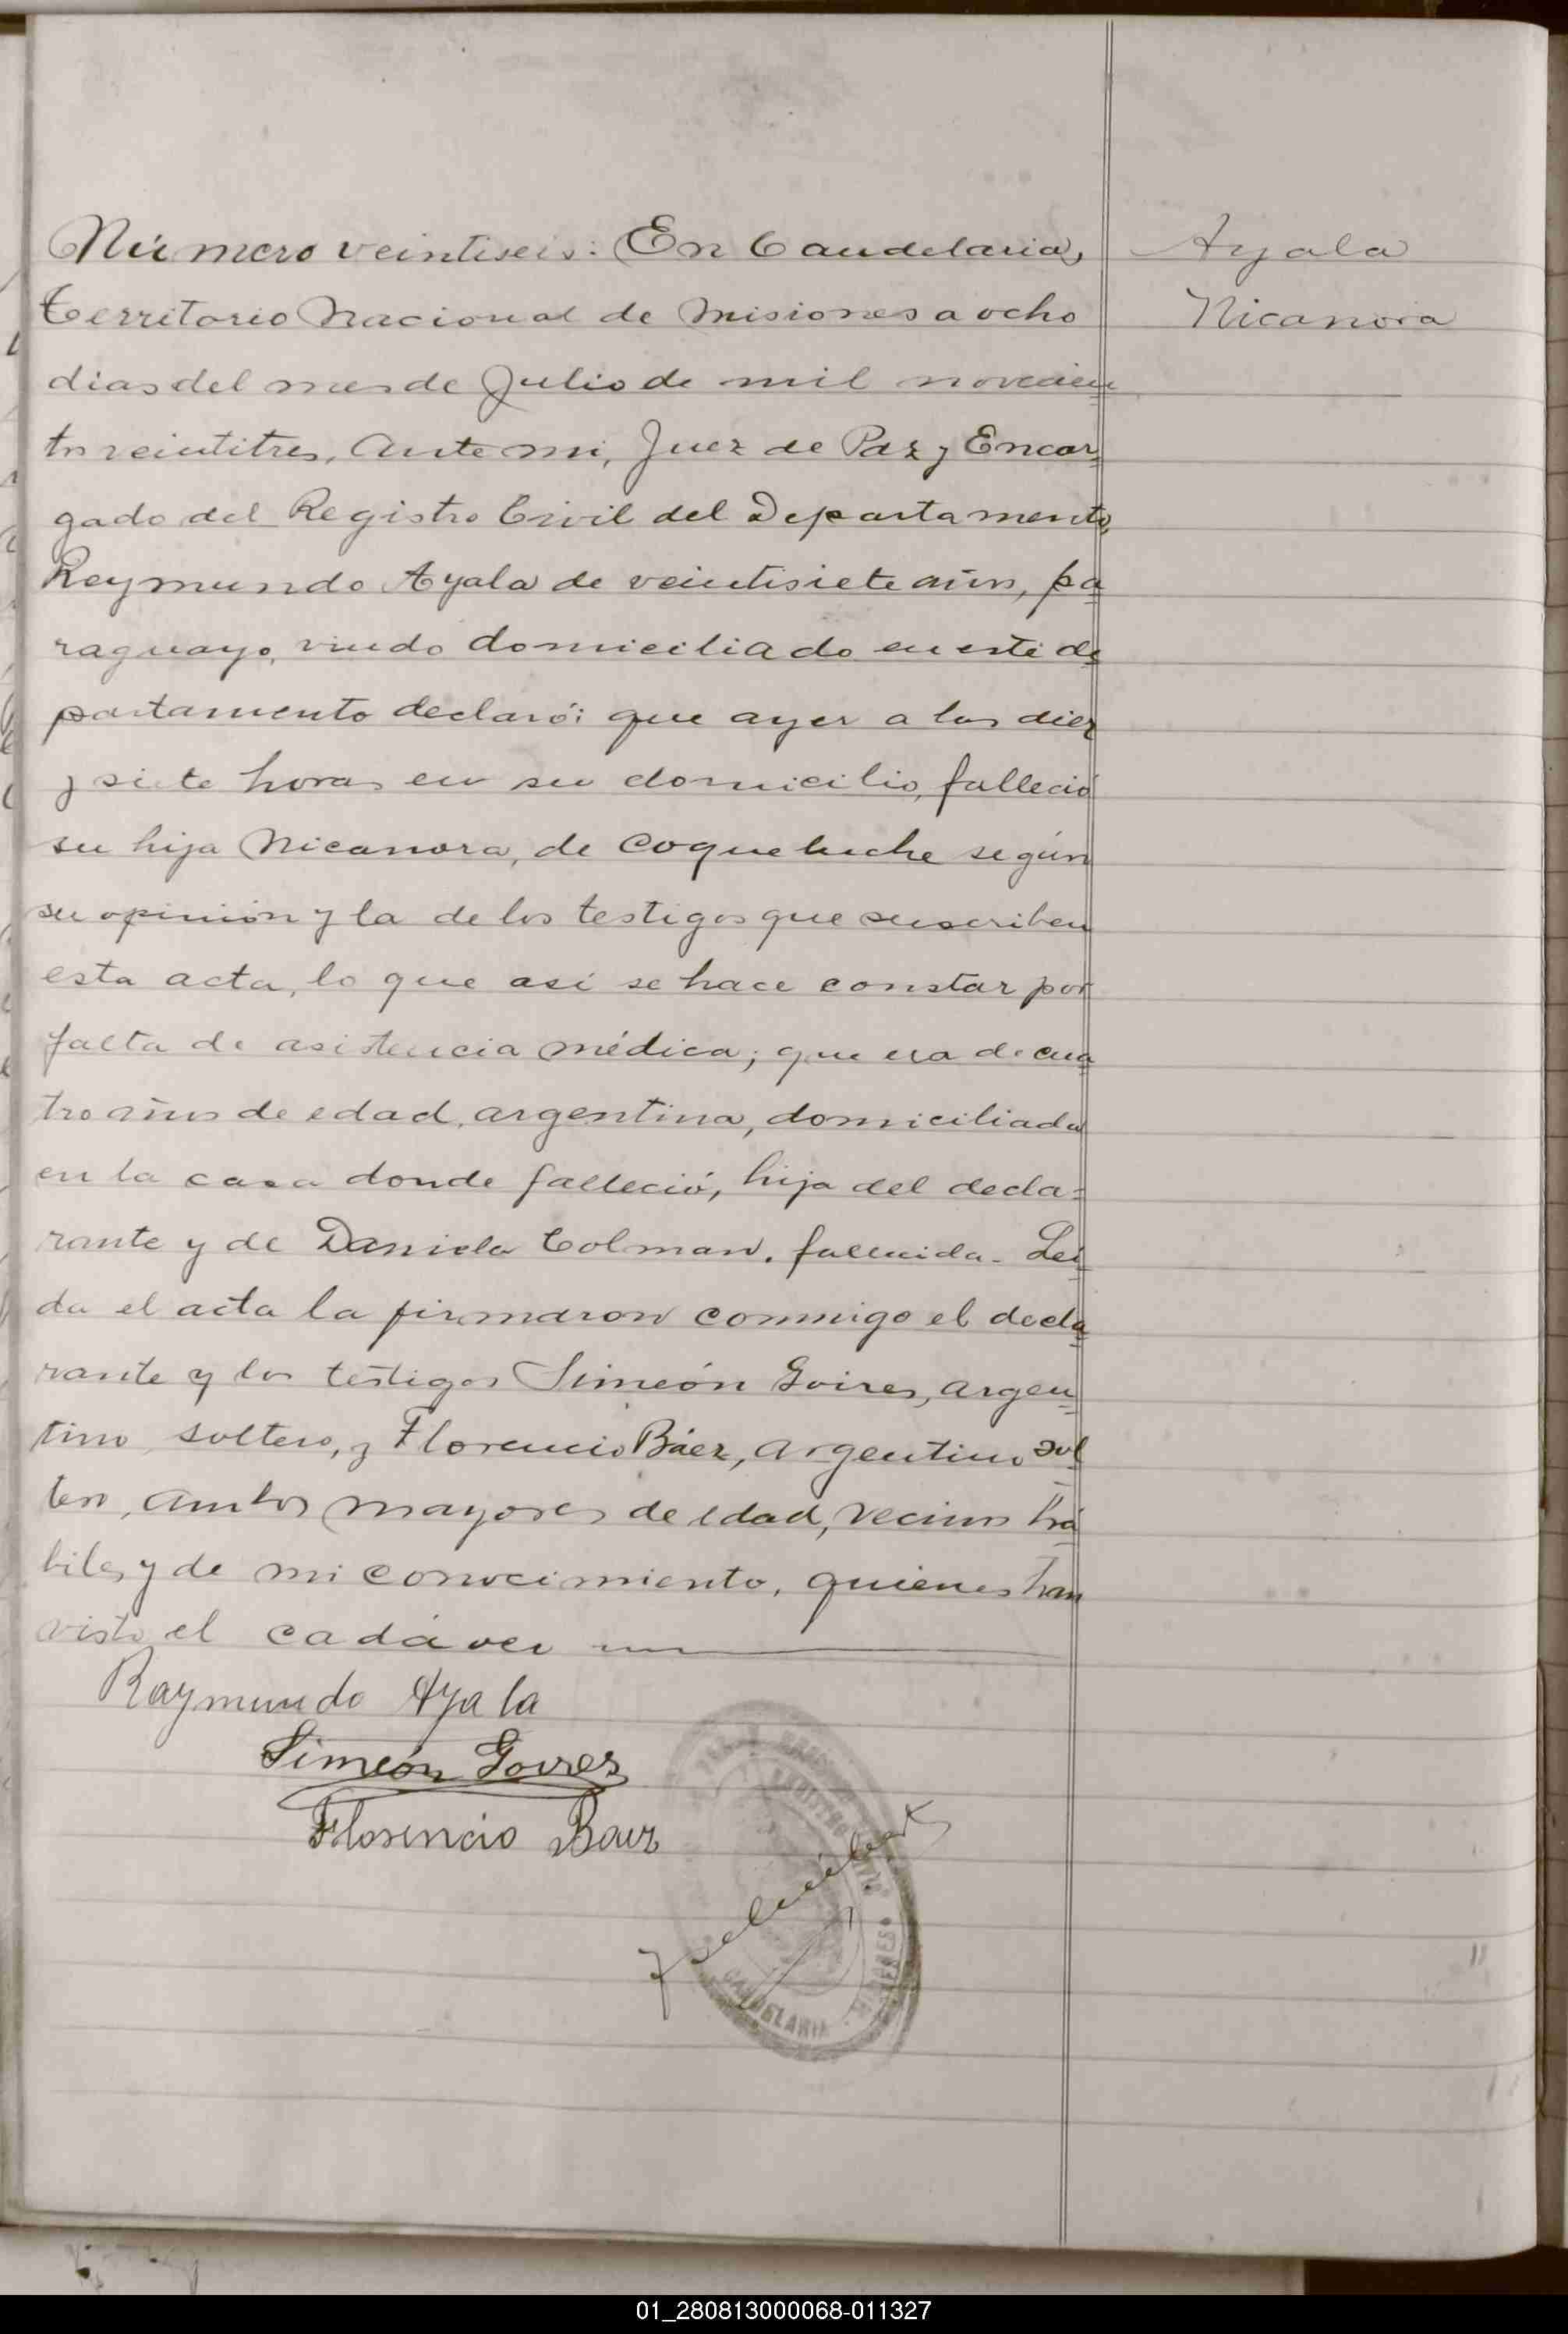 Número veintiseis: En Candelaria,
Ayala
territorio Nacional de Misiones a ocho
Nicanora
dias del mes de Julio de mil novecien
tos veintitres, Ante mi, Juez de Paz y Encar-
gado del Registro Civil del Departamento,
Reymundo Ayala de veintisiete años, pa-
raguayo, viudo domiciliado en este de-
partamento declaró: que ayer a las diez
y siete horas en su domicilio, falleció
su hija Nicanora, de Coqueluche según
su opinión y la de los testigos que suscriben
esta acta, lo que asi se hace constar por
falta de asistencia médica; que era de cua-
tro años de edad, argentina, domiciliada
en la casa donde falleció, hija del decla-
rante y de Daniela Colman, fallecida. Lei-
da el acta la firmaron conmigo el decla-
rante y los testigos Simeón Goires, argen-
tino soltero, y Florencio Báez, argentino sol-
tero, ambos mayores de edad, vecinos há-
biles y de mi conocimiento, quienes han
visto el cadáver
Raymundo Ayala
Simeón Goires
Florencio Baez
CANDELARIA
MISIONES
01_280813000068-011327